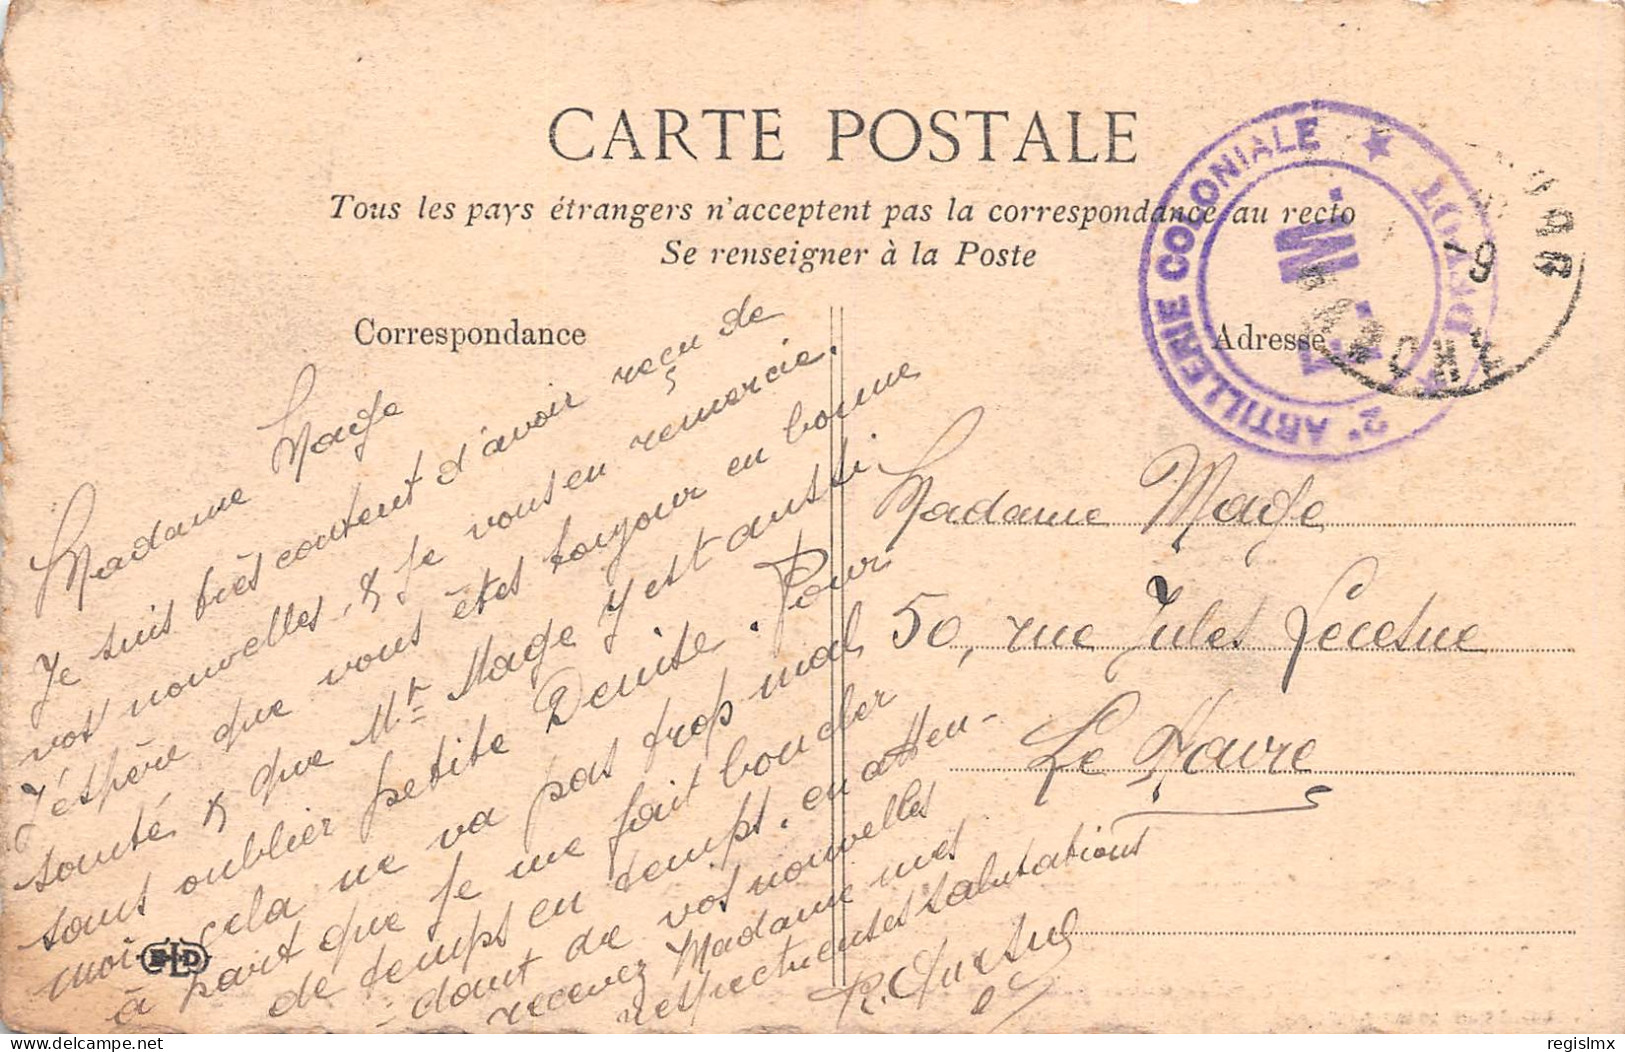 CARTE POSTALE
Tous les pays étrangers n'acceptent pas la correspondance au recto
Se renseigner à la Poste
Correspondance
Adresse
2e ARTILLERIE COLONIALE ★ DÉPOT ★
F. M.
Madame Mage
Je suis très content d'avoir reçu de
vos nouvelles, & Je vous en remercie.
J'éspère que vous êtes toujour en bonne
santé & que Mr Mage y est aussi
sans oublier petite Denise. Pour
moi cela ne va pas trop mal,
à part que je me fait boucler
de temps en temps. en atten-
-dant de vos nouvelles
recevez Madame mes
respectueuses salutations
Madame Mage
50, rue Jules Lecesne
Le Havre
ELD
regislmx
delcampe.net